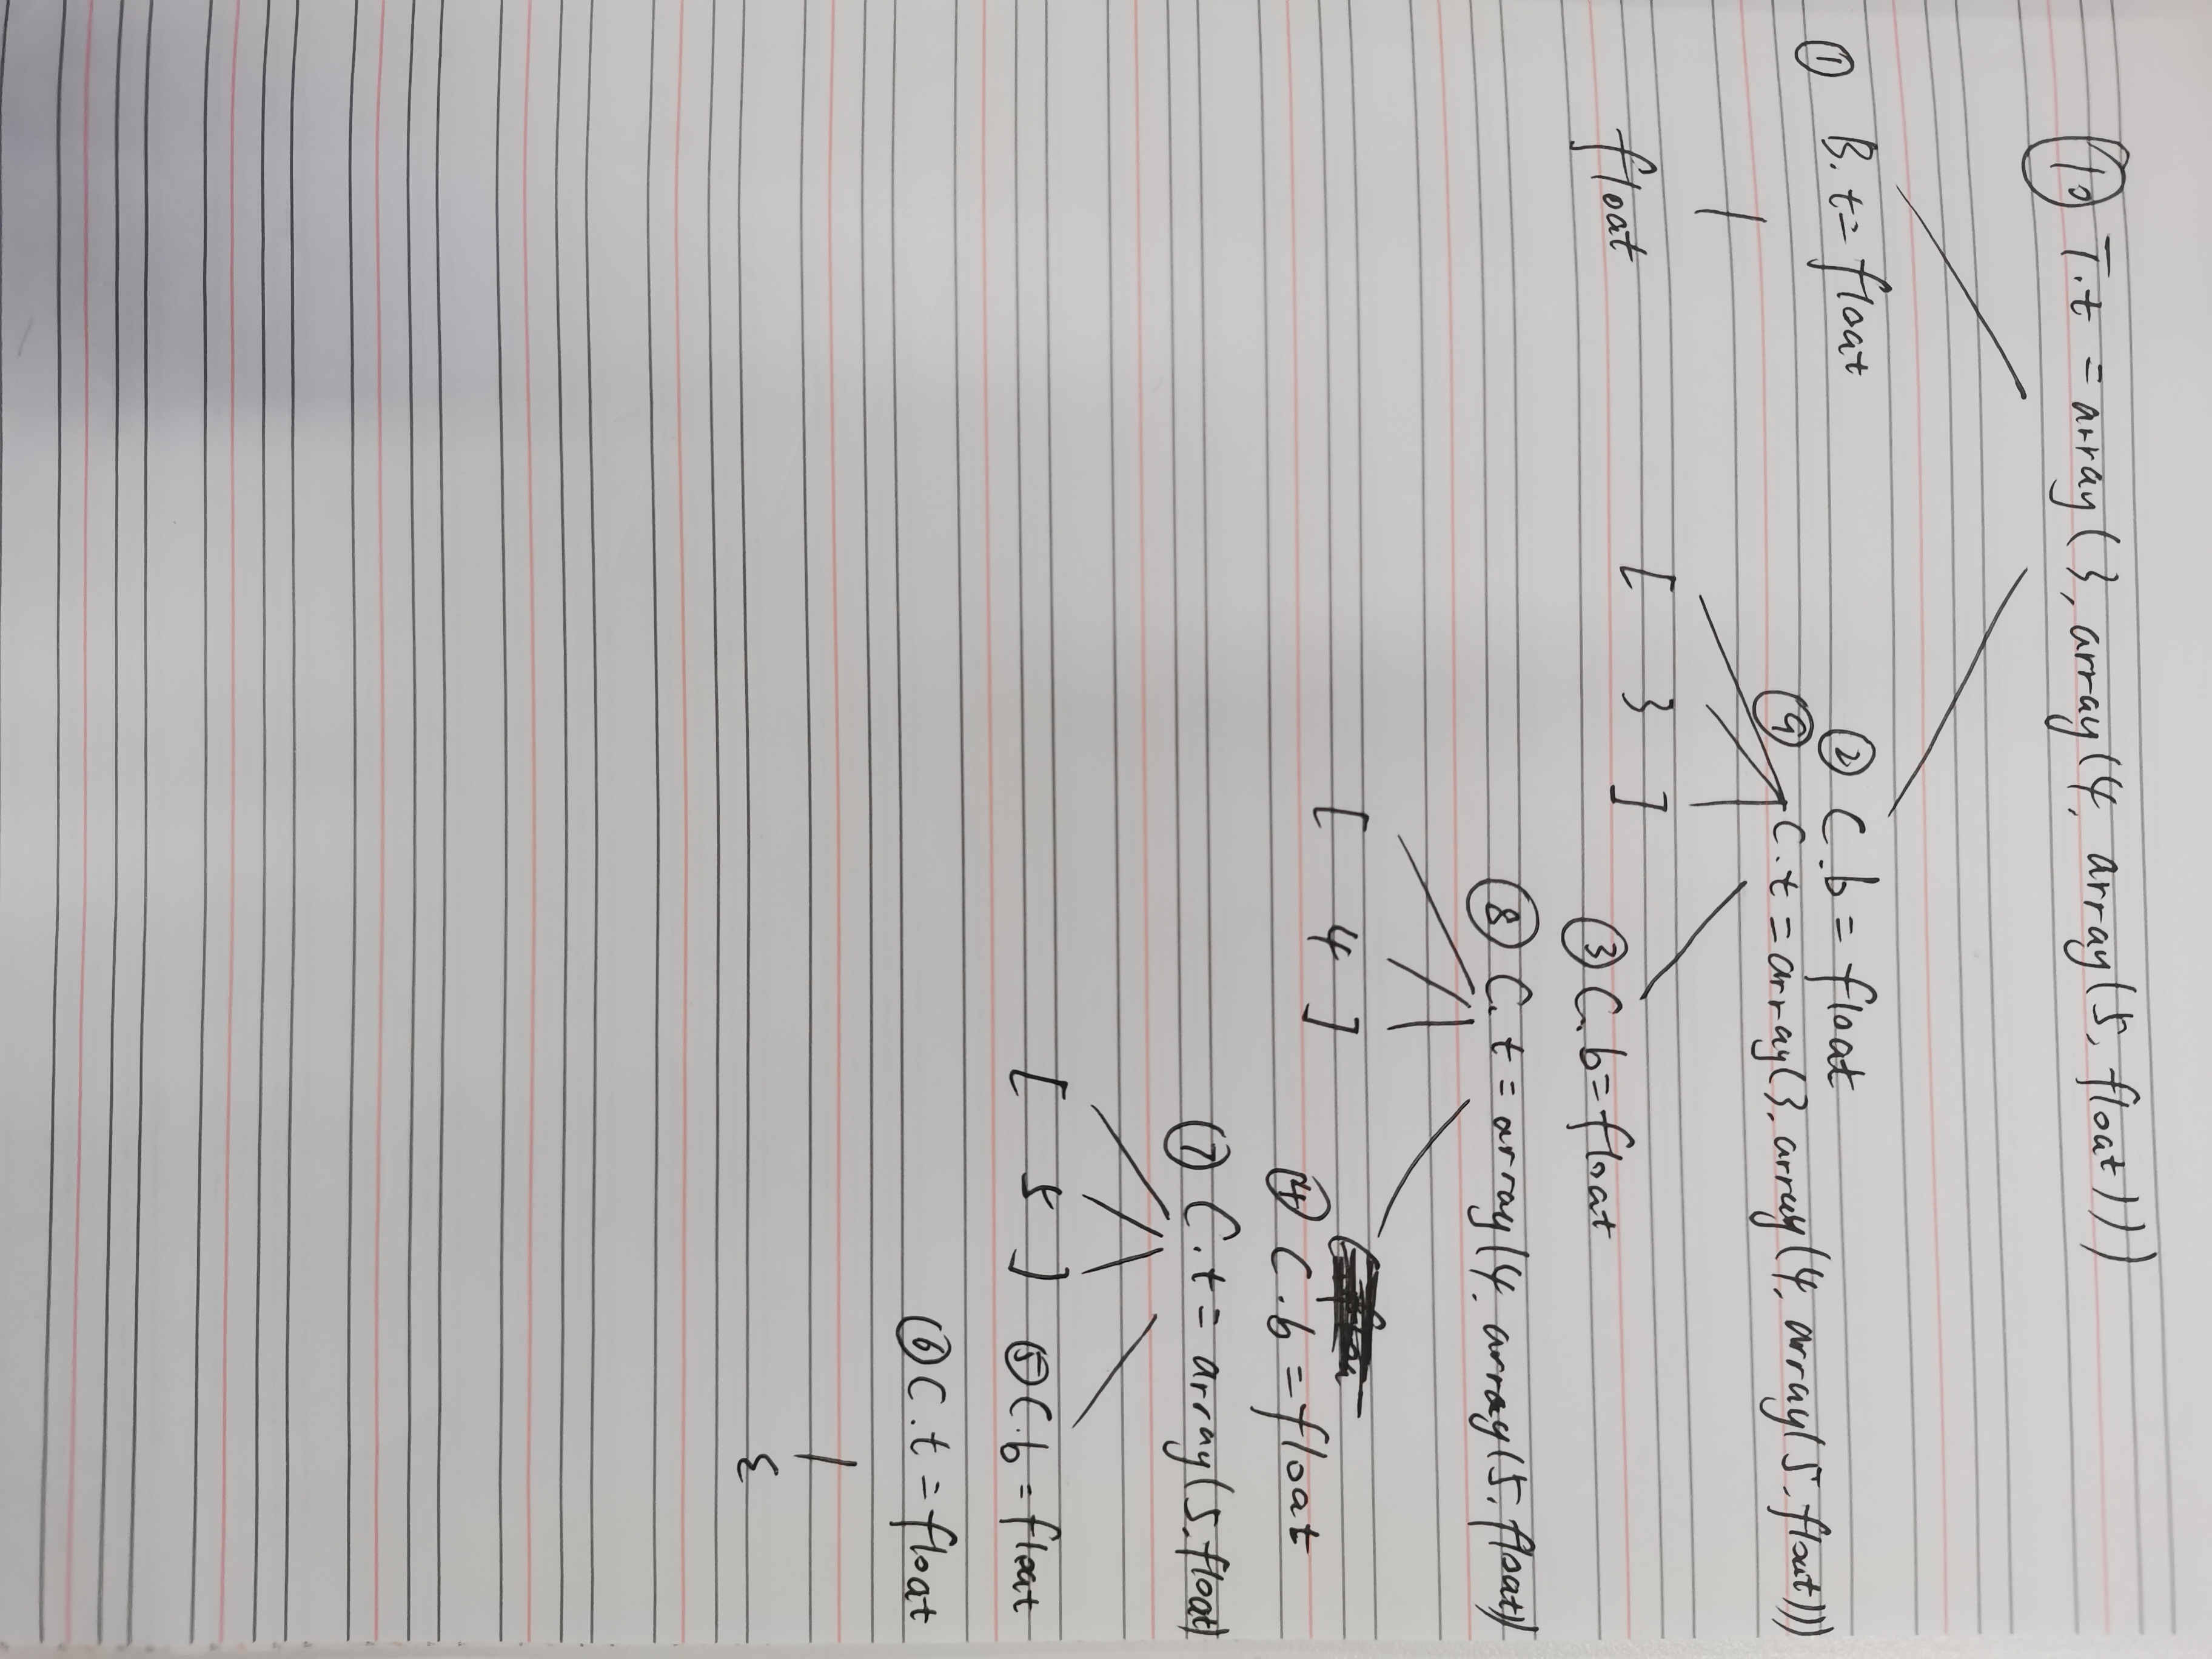 ⑩ T.t = array(3, array(4, array(5, float)))
① B.t = float
② C.b = float
⑨ C.t = array(3, array(4, array(5, float)))
float
[ 3 ]
③ C.b = float
⑧ C.t = array(4, array(5, float))
[ 4 ]
④ C.b = float
⑦ C.t = array(5, float)
[ 5 ] ⑤ C.b = float
⑥ C.t = float
ε